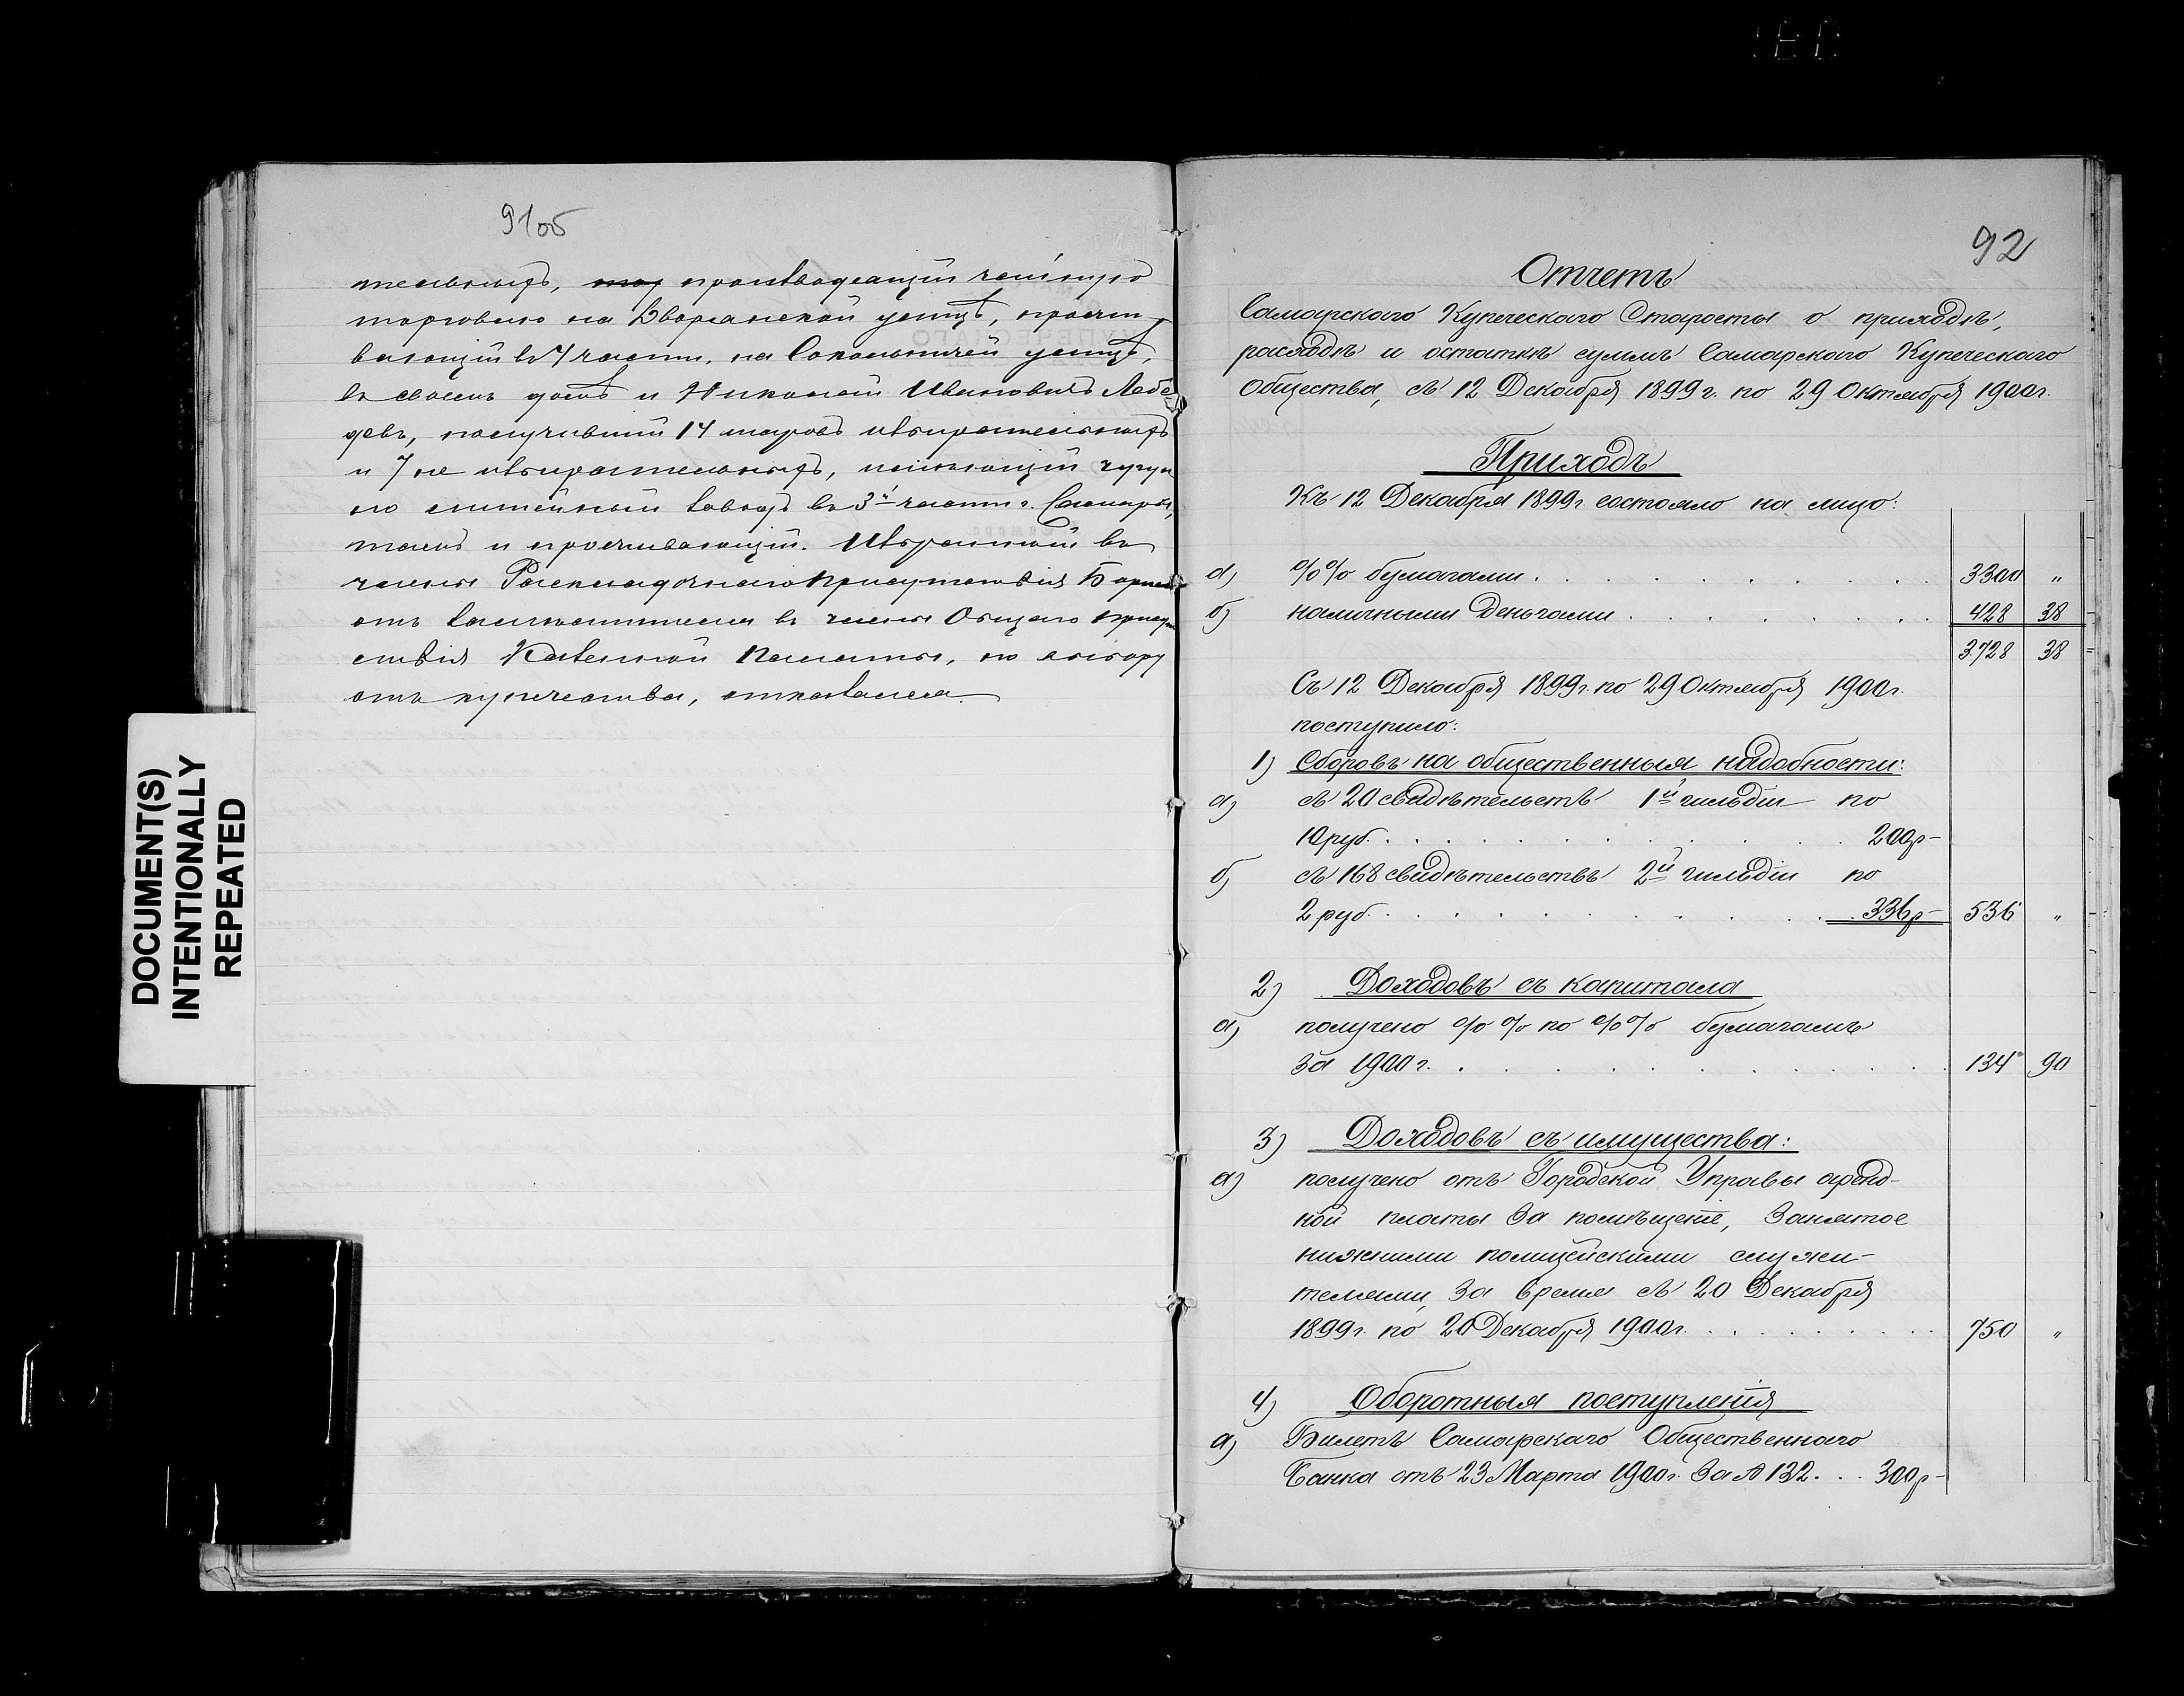 91об
тельныхъ, производящій чайную
торговлю на Дворянской улицѣ, прожи-
вающій въ 4 части, на Сокольничей улицѣ,
въ своемъ домѣ и Николай Ивановичъ Лебе
девъ, получившій 14 шаровъ избирательныхъ
и 7 не избирательныхъ, имѣющій чугун
но литейный заводъ въ 3й части г. Самары,
тамъ и проживающій. Избранный въ
члены Раскладочнаго Присутствія
отъ въ члены Общаго присут
ствія Казенной Палаты, по выбору
отъ купечества, отказался.
DOCUMENT(S)
INTENTIONALLY
REPEATED
92
Отчетъ
Самарскаго Купеческаго Старосты о приходѣ,
расходѣ и остаткѣ суммъ Самарскаго Купеческаго
Общества, съ 12 Декабря 1899 г. по 29 Октября 1900 г.
Приходъ
Къ 12 Декабря 1899 г. состояло на лицо:
а) %% бумагами . . . 3300 "
б) наличными деньгами . . . 428 38
3728 38
Съ 12 Декабря 1899 г. по 29 Октября 1900 г.
поступило:
1) Сборовъ на общественныя надобности:
а) съ 20 свидѣтельствъ 1й гильдіи по
10 руб. . . . 200р-
б) съ 168 свидѣтельствъ 2й гильдіи по
2 руб. . . . 336р- 536 "
2) Доходовъ съ капитала
а) получено %% по %% бумагамъ
за 1900 г. . . . 134 90
3) Доходовъ съ имущества:
а) получено отъ Городской Управы аренд-
ной платы за помѣщеніе, занятое
нижними полицейскими служи-
телями, за время съ 20 Декабря
1899 г. по 20 Декабря 1900 г. . . . 750 "
4) Оборотныя поступленія
а) Билетъ Самарскаго Общественнаго
Банка отъ 23 Марта 1900 г. за № 132 . . . 300р-